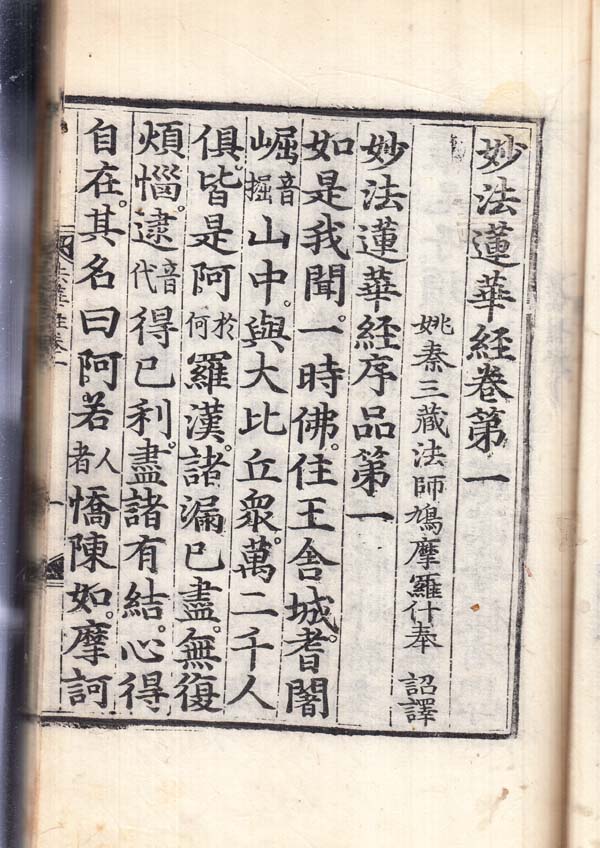 妙法蓮華経卷第一
姚秦三藏法師鳩摩羅什奉 詔譯
妙法蓮華経序品第一
如是我聞。一時佛。住王舍城。耆闍
崛音掘山中。與大比丘衆。萬二千人
俱。皆是阿於何羅漢。諸漏已盡。無復
煩惱。逮音代得已利。盡諸有結。心得
自在。其名曰阿若人者憍陳如。摩訶